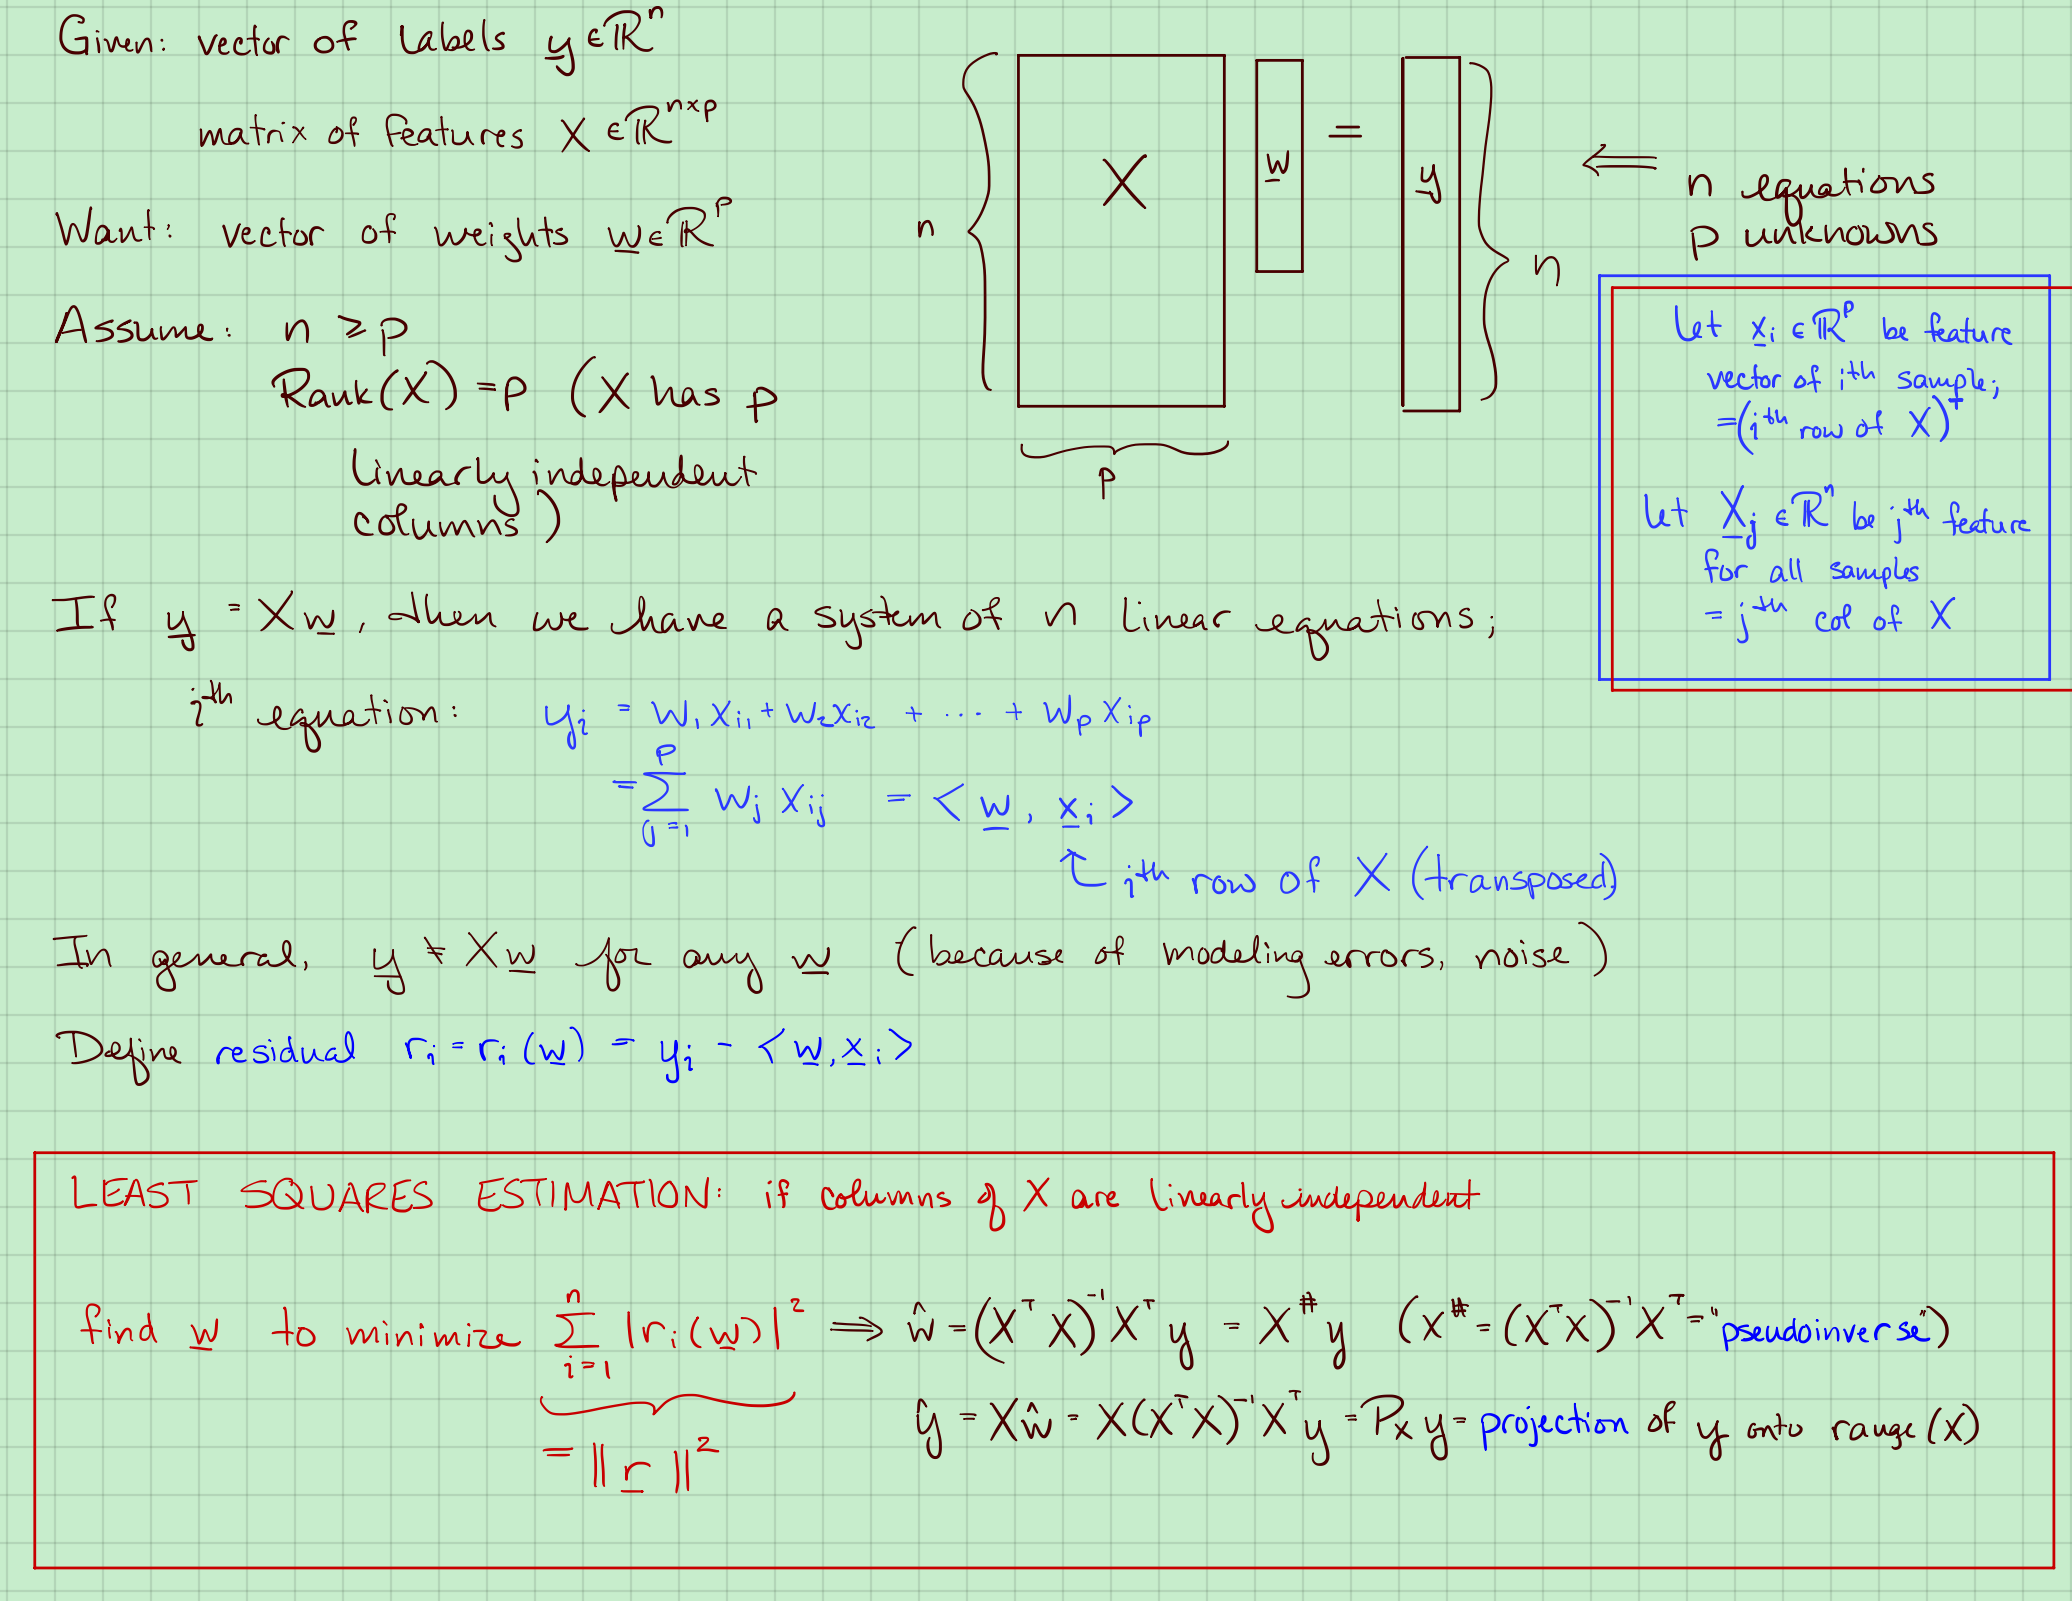 Given: vector of labels y ∈ ℝⁿ
matrix of features X ∈ ℝⁿˣᵖ
Want: vector of weights w ∈ ℝᵖ
Assume: n ≥ p
Rank(X) = p (X has p
linearly independent
columns)
n { X w = y } n
p
⇐ n equations
p unknowns
Let x_i ∈ ℝᵖ be feature
vector of iᵗʰ sample;
= (iᵗʰ row of X)ᵀ
Let X_j ∈ ℝⁿ be jᵗʰ feature
for all samples
= jᵗʰ col of X
If y = Xw, then we have a system of n linear equations;
iᵗʰ equation: y_i = w_1 x_{i1} + w_2 x_{i2} + ··· + w_p x_{ip}
= ∑_{j=1}^{p} w_j x_{ij} = <w, x_i>
iᵗʰ row of X (transposed)
In general, y ≠ Xw for any w (because of modeling errors, noise)
Define residual r_i = r_i(w) = y_i - <w, x_i>
LEAST SQUARES ESTIMATION: if columns of X are linearly independent
find w to minimize ∑_{i=1}^{n} |r_i(w)|² ⟹ ŵ = (XᵀX)⁻¹Xᵀy = X^# y (X^# = (XᵀX)⁻¹Xᵀ = "pseudoinverse")
= ||r||²
ŷ = Xŵ = X(XᵀX)⁻¹Xᵀy = P_X y = projection of y onto range(X)